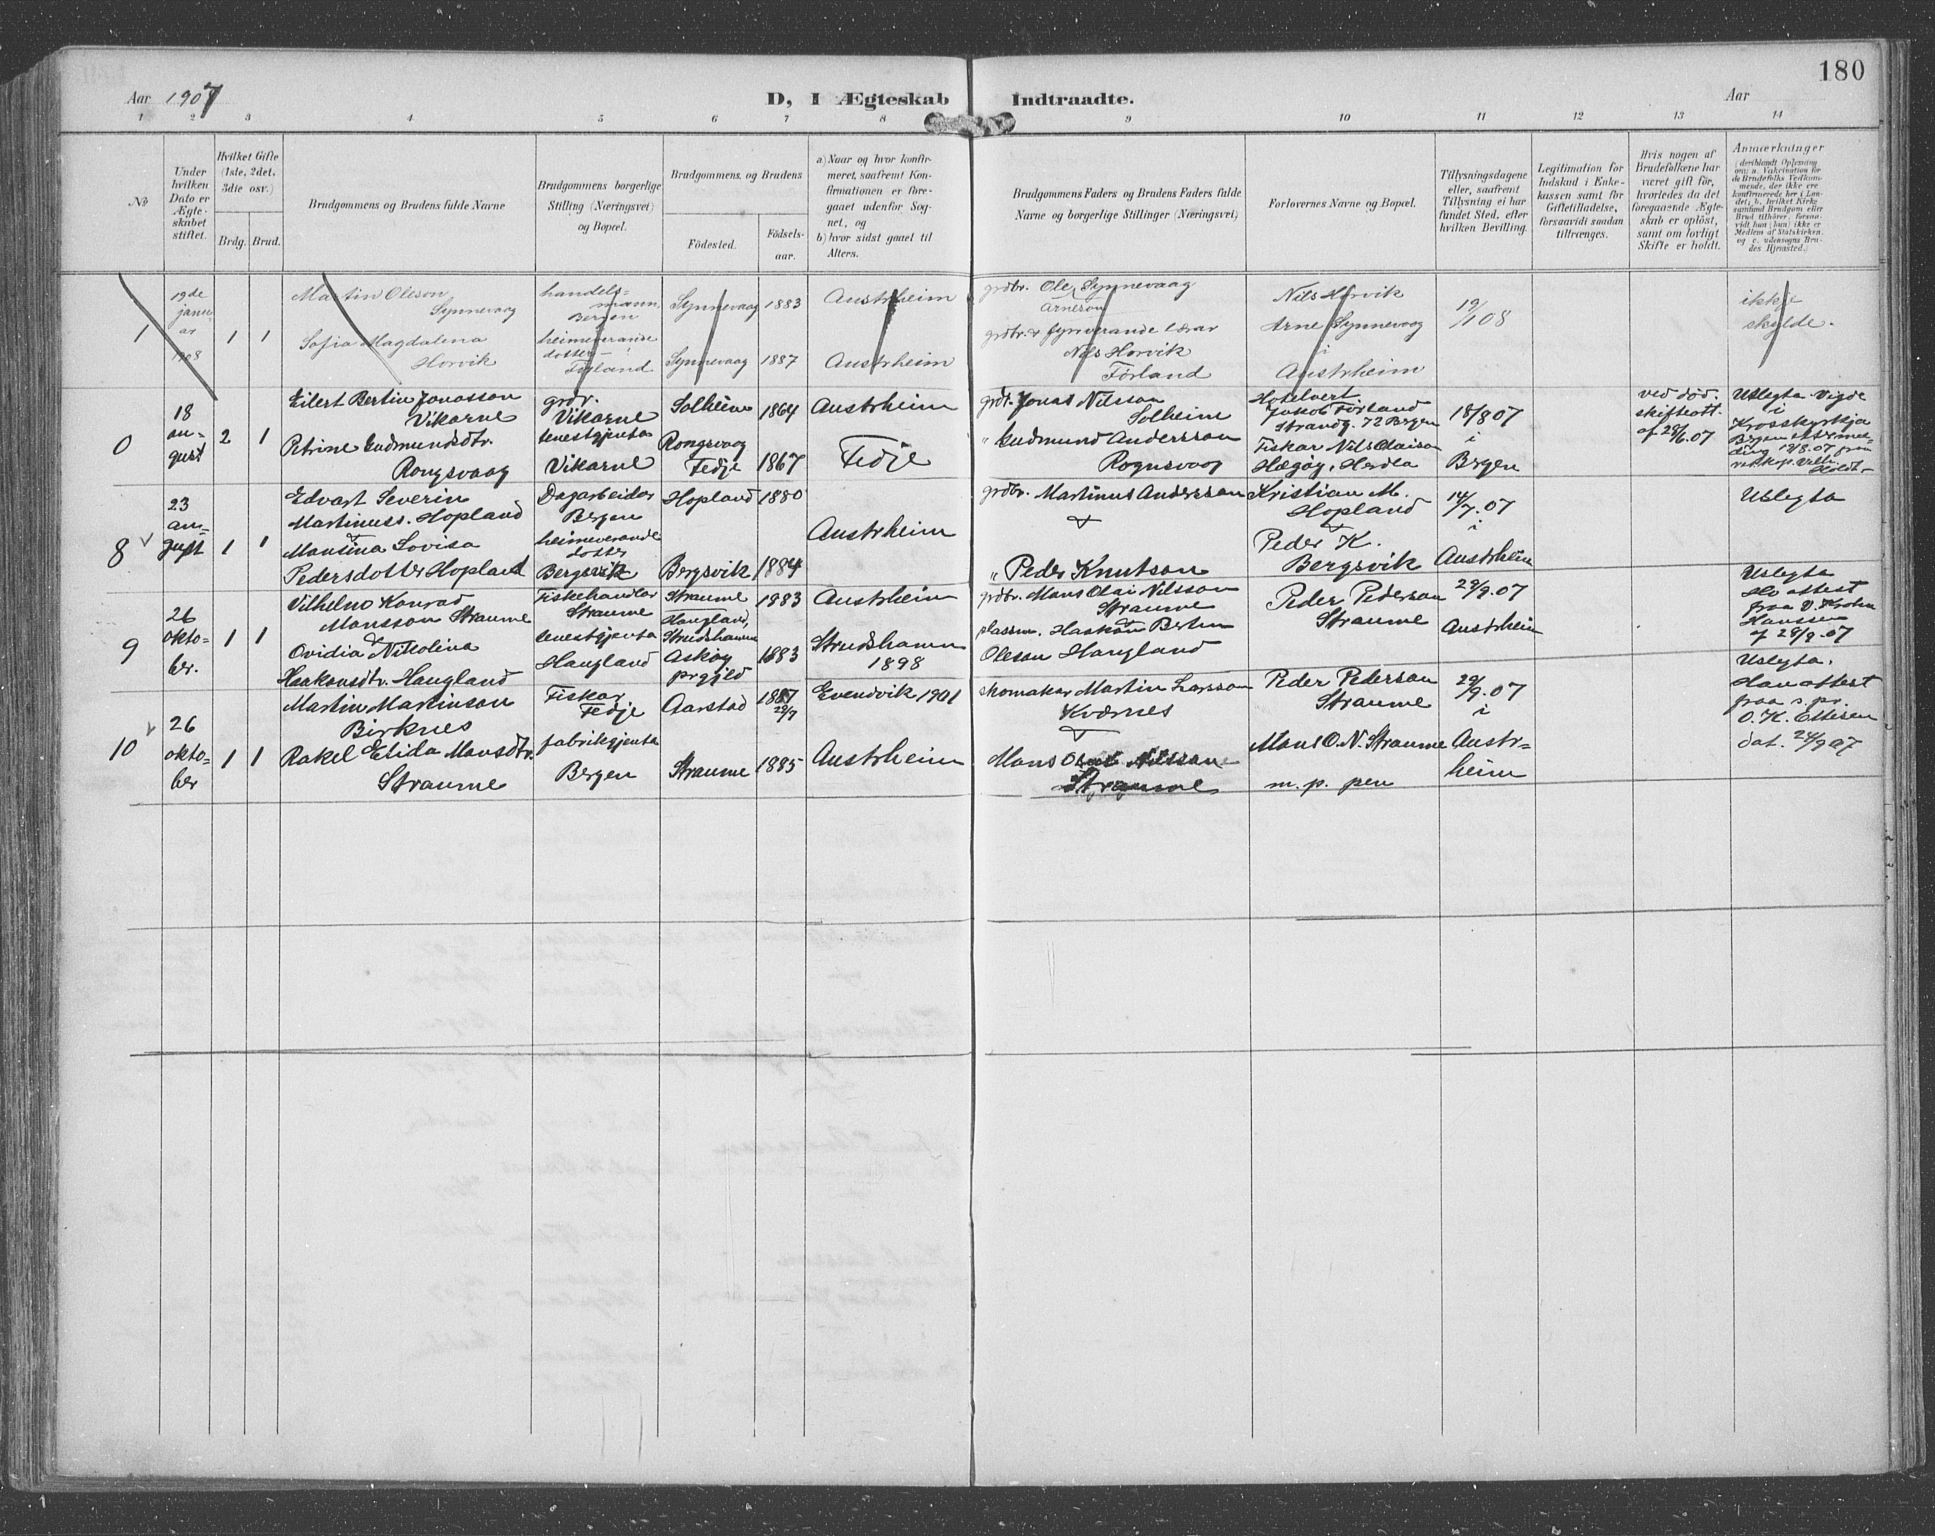 180
Aar 1907
D, I Ægteskab Indtraadte.
Aar
1 2 3 4 5 6 7 8 9 10 11 12 13 14
No
Under hvilken Dato er Ægteskabet stiftet.
Hvilket Gifte (1ste, 2det, 3die osv.)
Brdg. Brud.
Brudgommens og Brudens fulde Navne
Brudgommens borgerlige Stilling (Næringsvei) og Bopæl.
Brudgommens og Brudens
Födested. Födselsaar.
a) Naar og hvor konfirmeret, saafremt Konfirmationen er foregaaet udenfor Sognet, og
b) hvor sidst gaaet til Alters.
Brudgommens Faders og Brudens Faders fulde Navne og borgerlige Stillinger (Næringsvei)
Forlovernes Navne og Bopæl.
Tillysningsdagene eller, saafremt Tillysning ei har fundet Sted, efter hvilken Bevilling.
Legitimation for Indskud i Enkekassen samt for Giftetilladelse, forsaavidt saadan tiltrænges.
Hvis nogen af Brudefolkene har været gift för, hvorledes da det foregaaende Ægteskab er oplöst, samt om lovligt Skifte er holdt.
Anmærkninger
1
19de januar 1908
1 1
Martin Oleson Synnevaag
Sofia Magdalena Horvik
handelsmann Bergen
heimeverande dotter Förland
Synnevaag 1883
Synnevaag 1887
Austrheim
Austrheim
grdbr. Ole Arneson Synnevaag
grdbr. & fyrrverande lærar Nils Horvik Förland
Nils Horvik
Arne Synnevaag
i
Austrheim
19/1 08
ikkje skylde.
0
18 august
2 1
Eilert Bertin Jonasson Vikarne
Petrine Gudmundsdtr. Rongsvaag
grdr. Vikarne
tenestgjenta Vikarne
Solheim 1864
Rongsvaag Fedje 1867
Austrheim
Fedje
grdr. Jonas Nilsson Solheim
" Gudmund Andersson Rognsvaag
Hotelvert Jakob Förland Strandg. 72 Bergen
Fiskar Nils Olaison Hægöy, Herdla
18/8 07
i
Bergen
ved död. skifteatt. af 28/6.07
Uslegta. Vigde i Krosskyrkja Bergen etter melding 19/8.07 fraa
8
23 august
1 1
Edvart Severin Martinuss. Hopland
&
Mansina Lovisa Pedersdotter Hopland
Dagarbeidar Bergen
heimeverande dotter Bergsvik
Hopland 1880
Bergsvik 1884
Austrheim
grdbr. Martinus Andersson
&
" Peder Knutson
Kristian M. Hopland
&
Peder K. Bergsvik
14/7.07
i
Austrheim
Uslegta
9
26 oktober.
1 1
Vilhelm Konrad Mansson Straume
&
Ovidia Nikolina Haakonsdtr. Haugland
Fiskehandlar Straume
tenestgjenta Haugland
Straume 1883
Haugland, Strudshamn Askøy prgjeld 1883
Austrheim
Strudshamn 1898
grdbr. Mans Olai Nilsson Straume
&
plassm. Haakon Bertin Oleson Haugland
Peder Pederson Straume
29/9.07
Austrheim
Uslegta
Ho attest fraa Hanssen af 28/9.07
10
26 oktober
1 1
Martin Martinson Birknes
Rakel Elida Mansdtr. Straume
Fiskar Fedje
fabrikgjenta Bergen
Aarstad 1887 29/7
Straume 1885
Evendvik 1901
Austrheim
skomakar Martin Larsson Kværnes
&
Mans Olai Nilsson Straume
Peder Pederson Straume
Mans O. N. Straume
m. p. pen
29/9.07
i
Austrheim
Uslegta.
Han attest fraa s. pr. O. K. Ettesen dat. 24/9 07